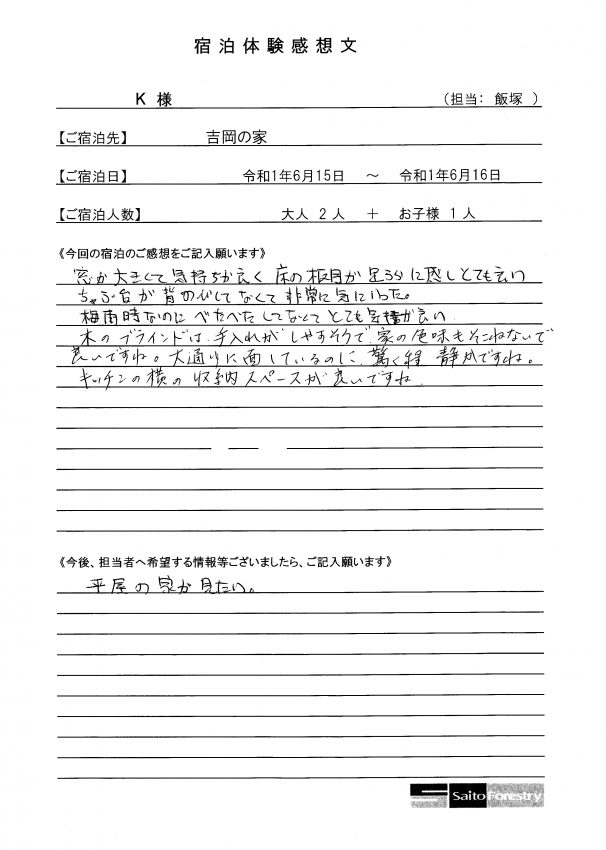 宿泊体験感想文
K 様 (担当: 飯塚 )
【ご宿泊先】 吉岡の家
【ご宿泊日】 令和1年6月15日 ～ 令和1年6月16日
【ご宿泊人数】 大人 2人 ＋ お子様 1人
《今回の宿泊のご感想をご記入願います》
窓が大きくて気持ちが良く 床の板目が足うらに感じとても良い
ちゃぶ台が背のびしてなくて非常に気に入った。
梅雨時なのにべたべたしてなくてとても気持が良い
木のブラインドは手入れがしやすそうで家の色味もそこねないで
良いですね。大通りに面しているのに、驚く程 静かですね。
キッチンの横の収納スペースが良いですね
《今後、担当者へ希望する情報等ございましたら、ご記入願います》
平屋の家が見たい。
Saito Forestry